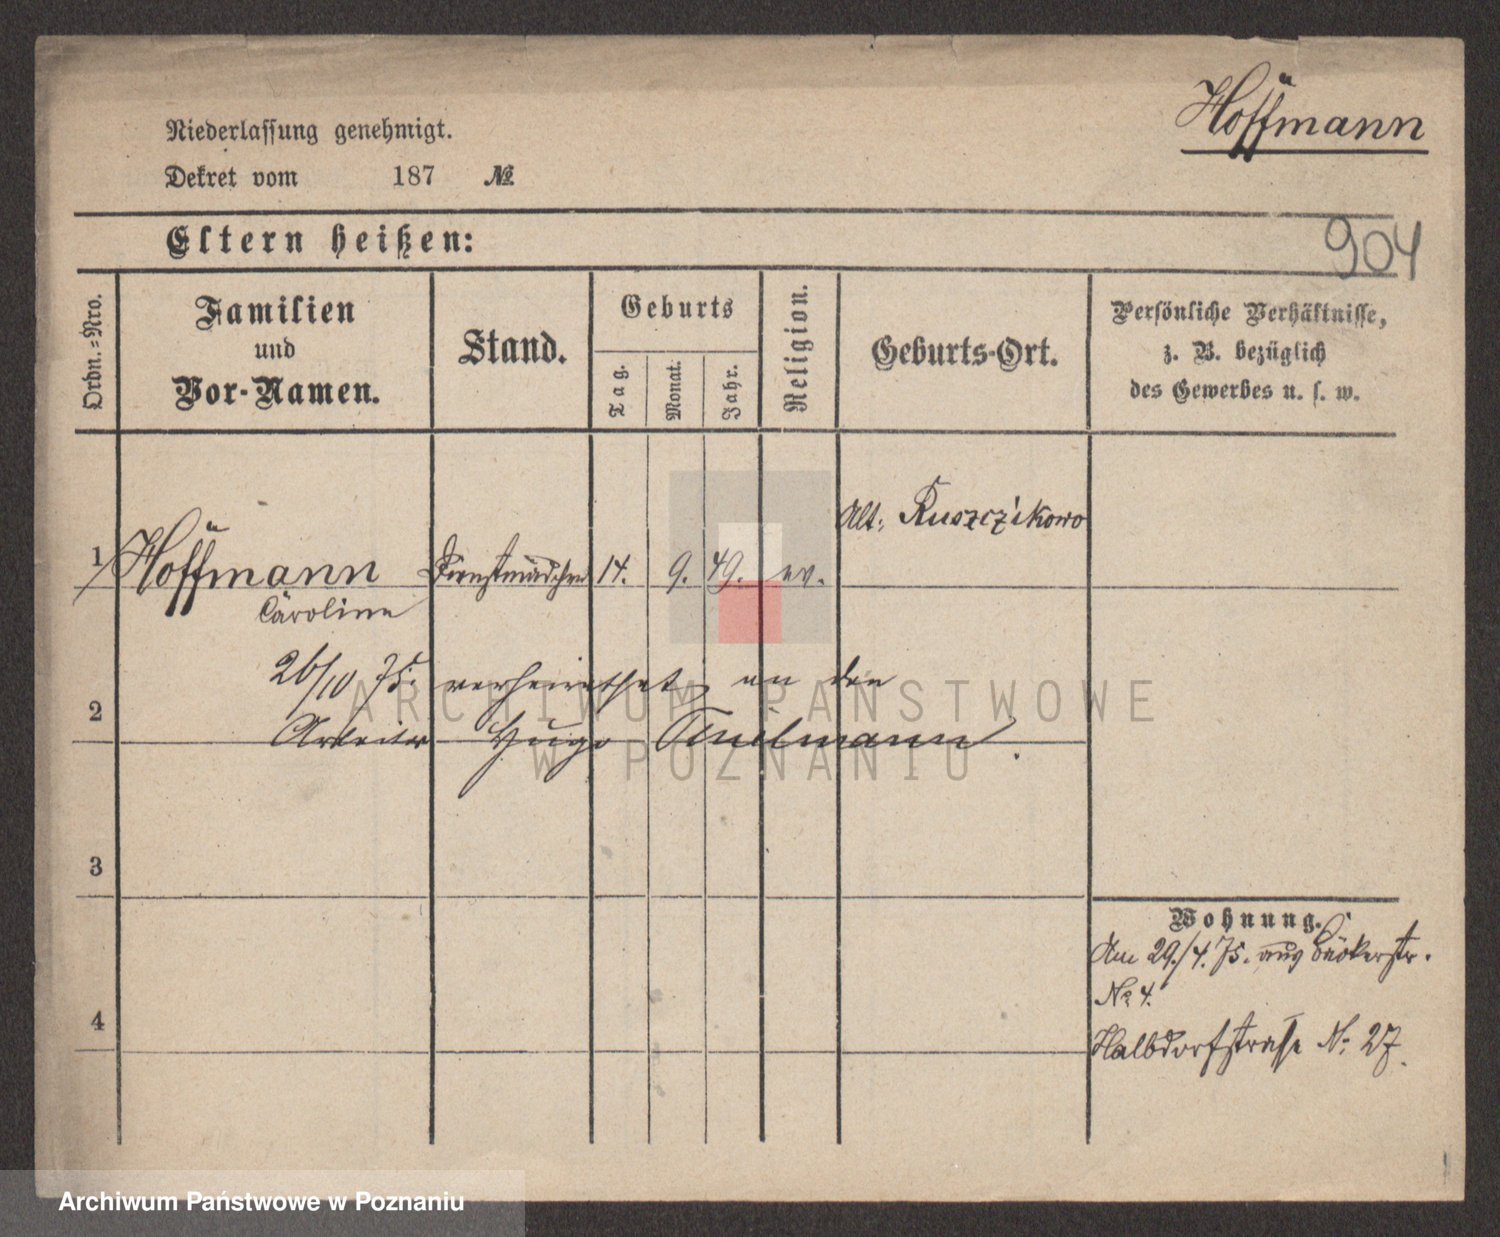 Hoffmann
Niederlassung genehmigt.
Dekret vom 187 №
904
Eltern heißen:
Ordn.=Nro.
Familien
und
Vor-Namen.
Stand.
Geburts
Tag.
Monat.
Jahr.
Religion.
Geburts-Ort.
Persönliche Verhältnisse,
z. B. bezüglich
des Gewerbes u. s. w.
Alt: Ruszczikowo
1 Hoffmann Dienstmädchen 14. 9. 49. ev.
Caroline
26/10 75. verheirathet an den
2
Arbeiter Hugo
ARCHIWUM PAŃSTWOWE
W POZNANIU
3
Wohnung.
Am 29./4. 75. aus Bäckerstr.
№ 4.
4
Halbdorfstraße N: 27.
Archiwum Państwowe w Poznaniu